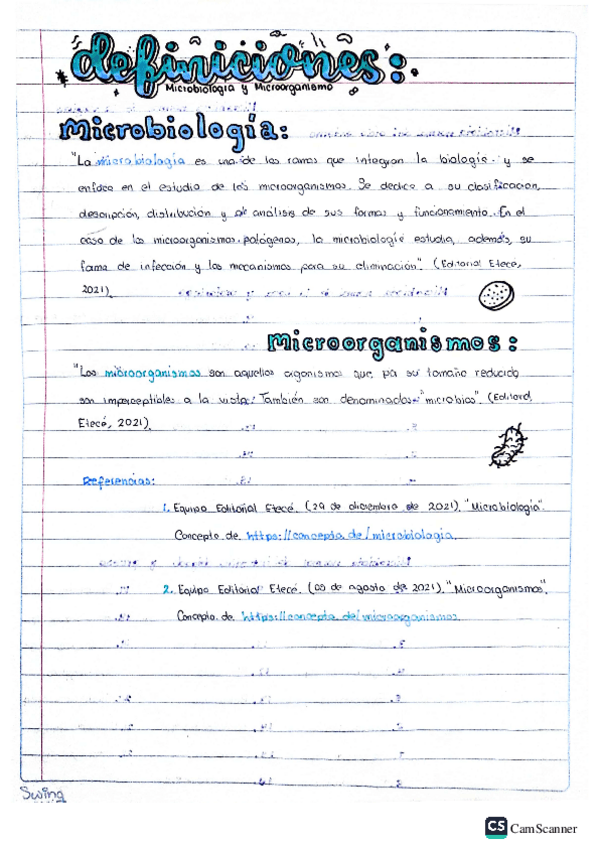 definiciones:
Microbiología y Microorganismo
Microbiología:
"La microbiología es una de las ramas que integran la biología y se
enfoca en el estudio de los microorganismos. Se dedica a su clasificación,
descripción, distribución y el análisis de sus formas y funcionamiento. En el
caso de los microorganismos patógenos, la microbiología estudia, además, su
forma de infección y los mecanismos para su eliminación". (Editorial Etecé,
2021).
Microorganismos:
"Los microorganismos son aquellos organismos que por su tamaño reducido
son imperceptibles a la vista. También son denominados "microbios". (Editorial,
Etecé, 2021).
Referencias:
1. Equipo Editorial Etecé. (29 de diciembre de 2021). "Microbiología".
Concepto de. https://concepto.de/microbiologia.
2. Equipo Editorial Etecé. (05 de agosto de 2021). "Microorganismos".
Concepto de. https://concepto.de/microorganismos.
Swing
CS CamScanner